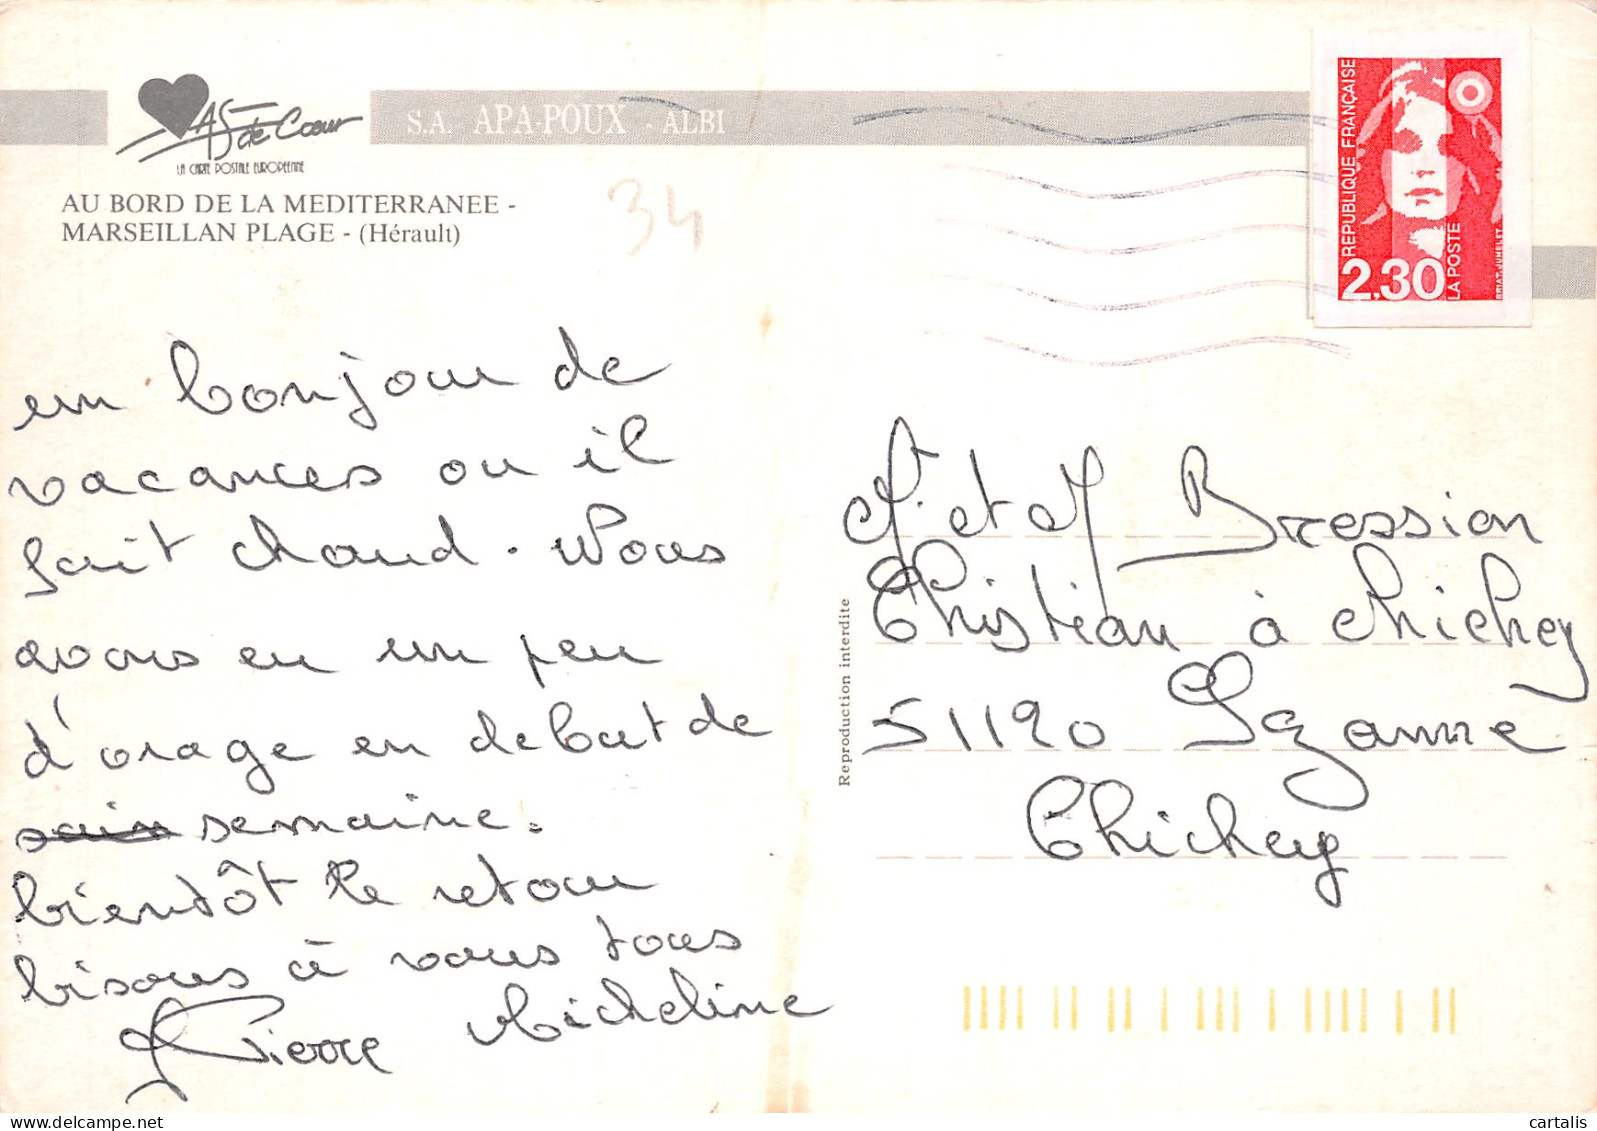 As de Cœur
LA CARTE POSTALE EUROPEENNE
S.A. APA-POUX - ALBI
AU BORD DE LA MEDITERRANEE -
MARSEILLAN PLAGE - (Hérault)
34
REPUBLIQUE FRANÇAISE
2,30
LA POSTE
BRIAT-JUMELET
un bonjour de
vacances ou il
fait chaud. Nous
avons eu un peu
d'orage en debut de
semaine.
bientôt le retour
bisous à vous tous
Pierre Micheline
et Bression
Christian à Chichey
51120 Sézanne
Chichey
Reproduction interdite
cartalis